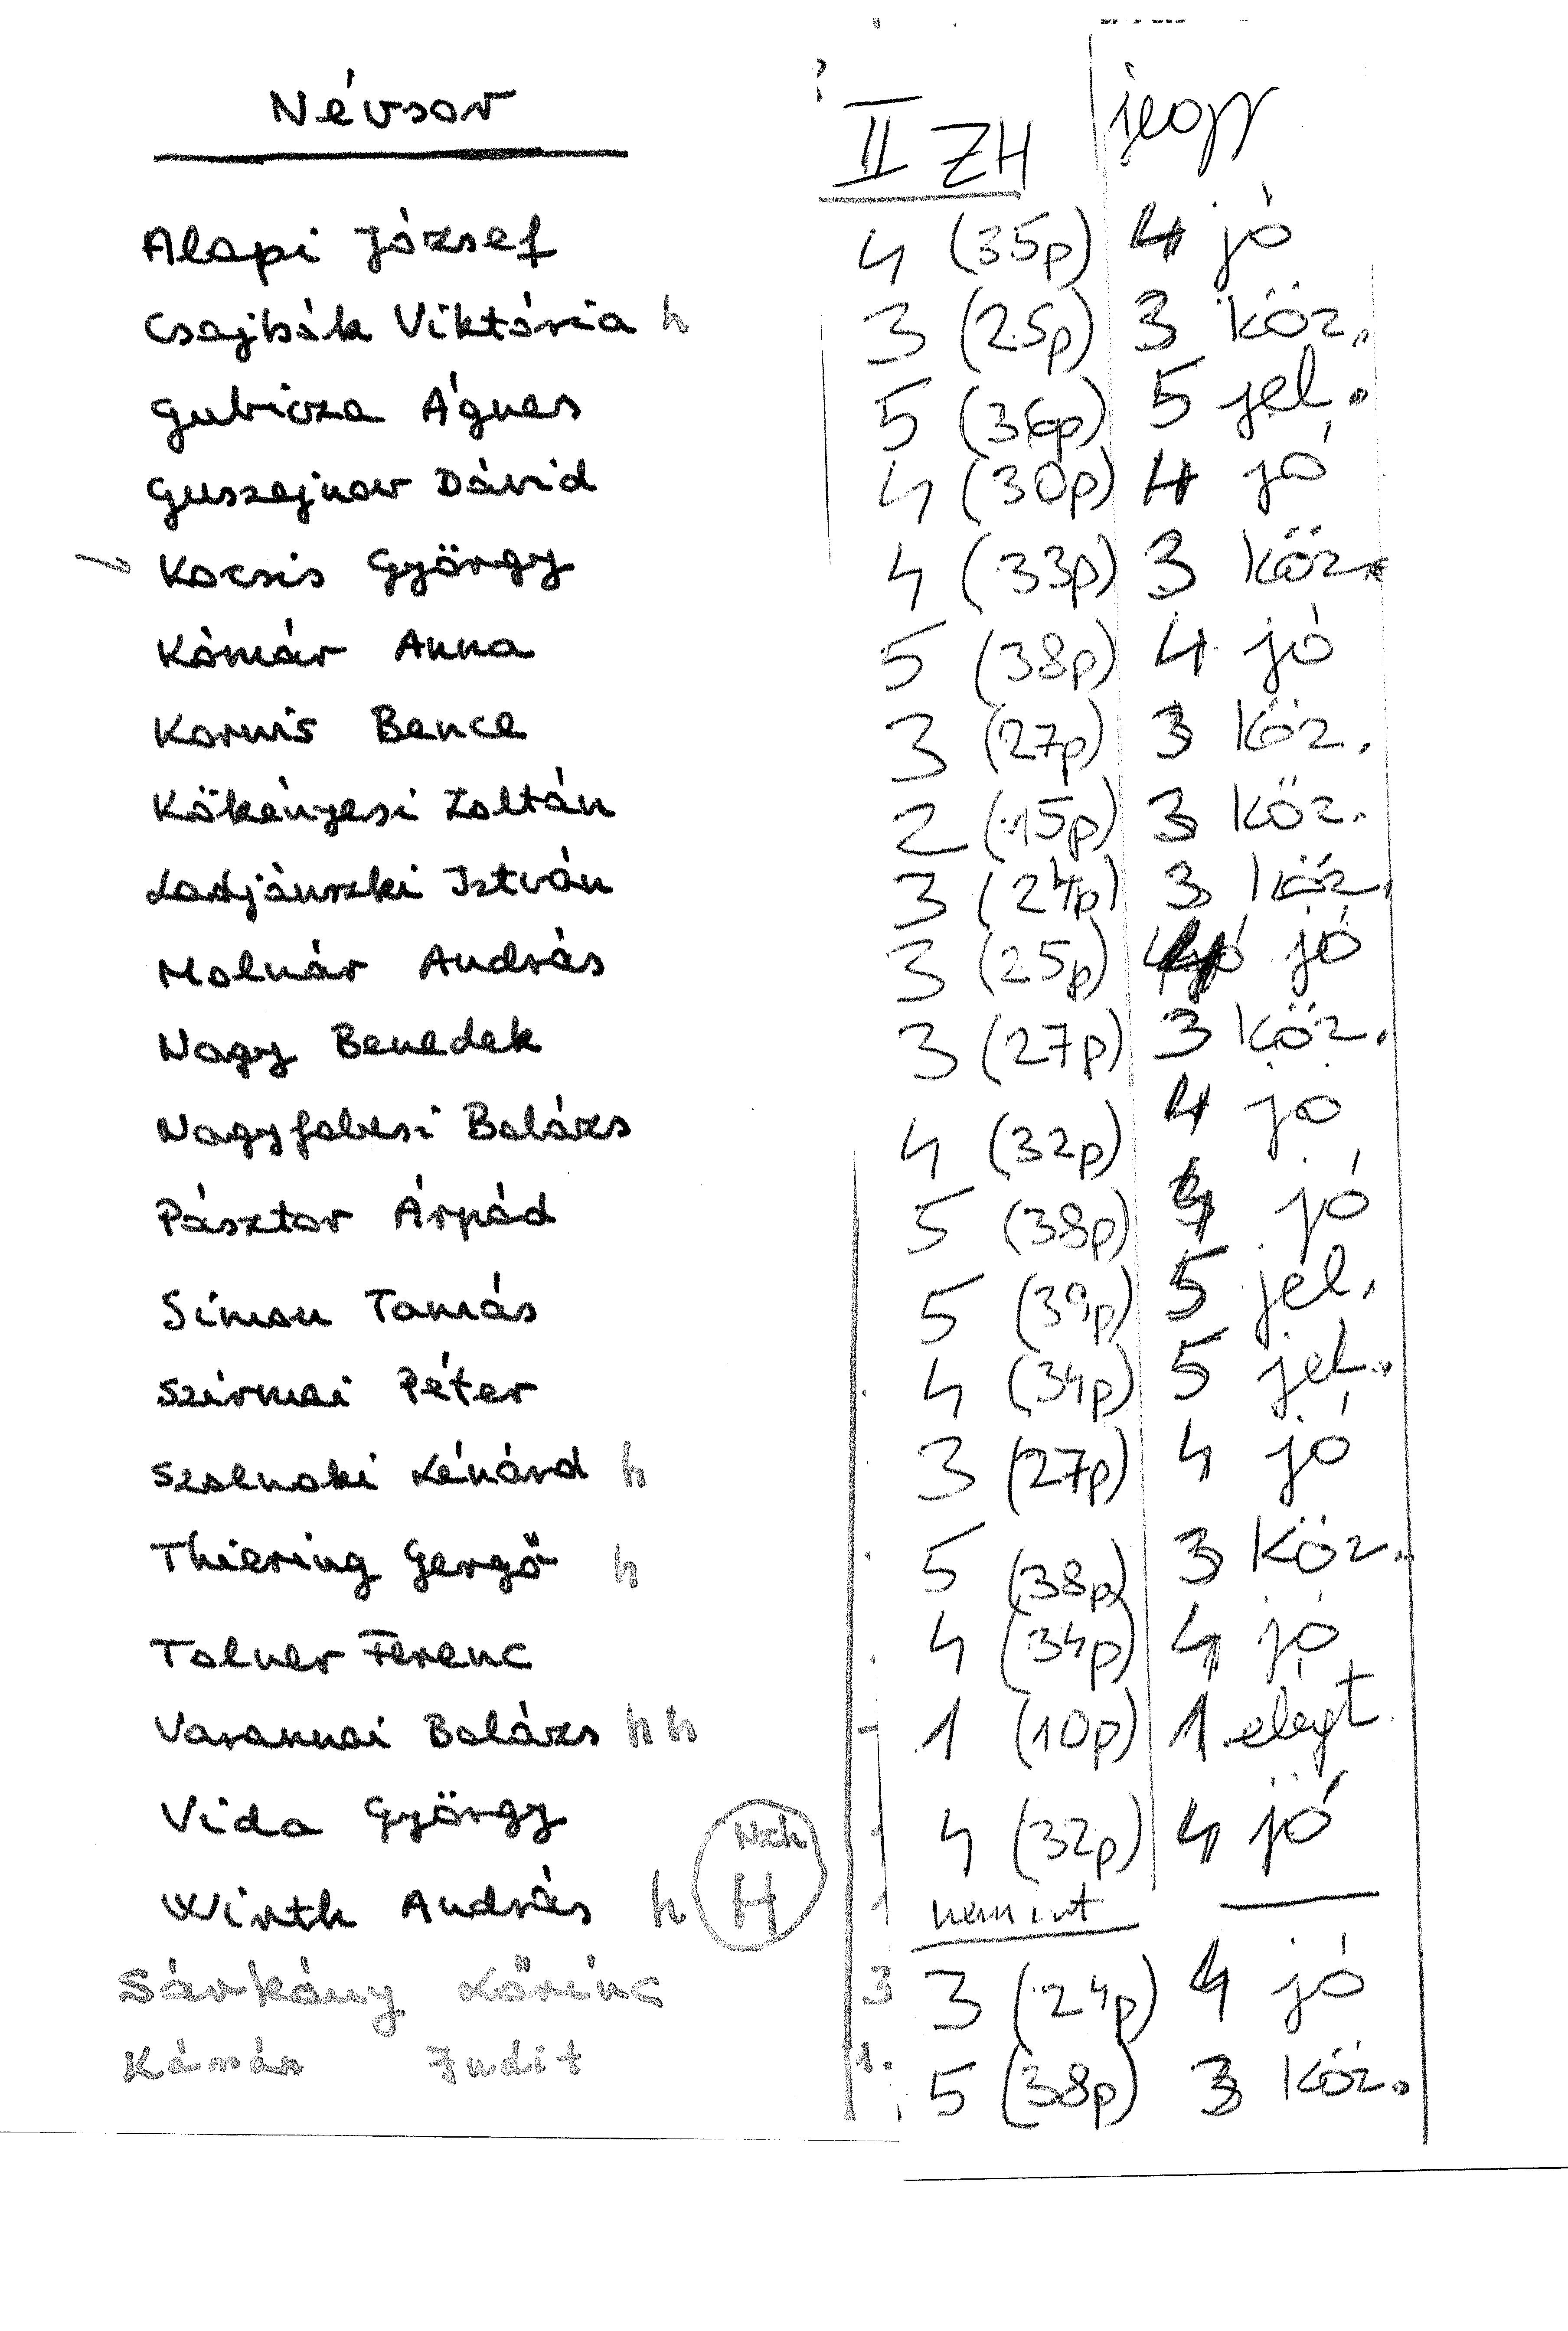 Névsor II ZH jegy
Alapi József 4 (35p) 4 jó
Csajbók Viktória h 3 (25p) 3 köz.
Gubicza Ágnes 5 (36p) 5 jel.
Guszejnov Dávid 4 (30p) 4 jó
Kocsis György 4 (33p) 3 köz.
Kómár Anna 5 (38p) 4 jó
Kornis Bence 3 (27p) 3 köz.
Kökényesi Zoltán 2 (15p) 3 köz.
Ladjánszki István 3 (24p) 3 köz.
Molnár András 3 (25p) 4 jó
Nagy Benedek 3 (27p) 3 köz.
Nagyfalusi Balázs 4 (32p) 4 jó
Pásztor Árpád 5 (38p) 4 jó
Simon Tamás 5 (39p) 5 jel.
Szirmai Péter 4 (34p) 5 jel.
Szolnoki Lénárd h 3 (27p) 4 jó
Thiering Gergő h 5 (38p) 3 köz.
Tolner Ferenc 4 (34p) 4 jó
Varannai Balázs h h 1 (10p) 1 elégt
Vida György 4 (32p) 4 jó
Nzh
Wirth András h H nem írt
Sárkány Lőrinc 3 3 (24p) 4 jó
Kámán Judit 1. 5 (38p) 3 köz.